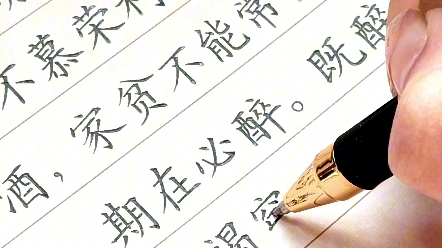 不慕荣利
酒，家贫不能常
期在必醉。既醉
褐空